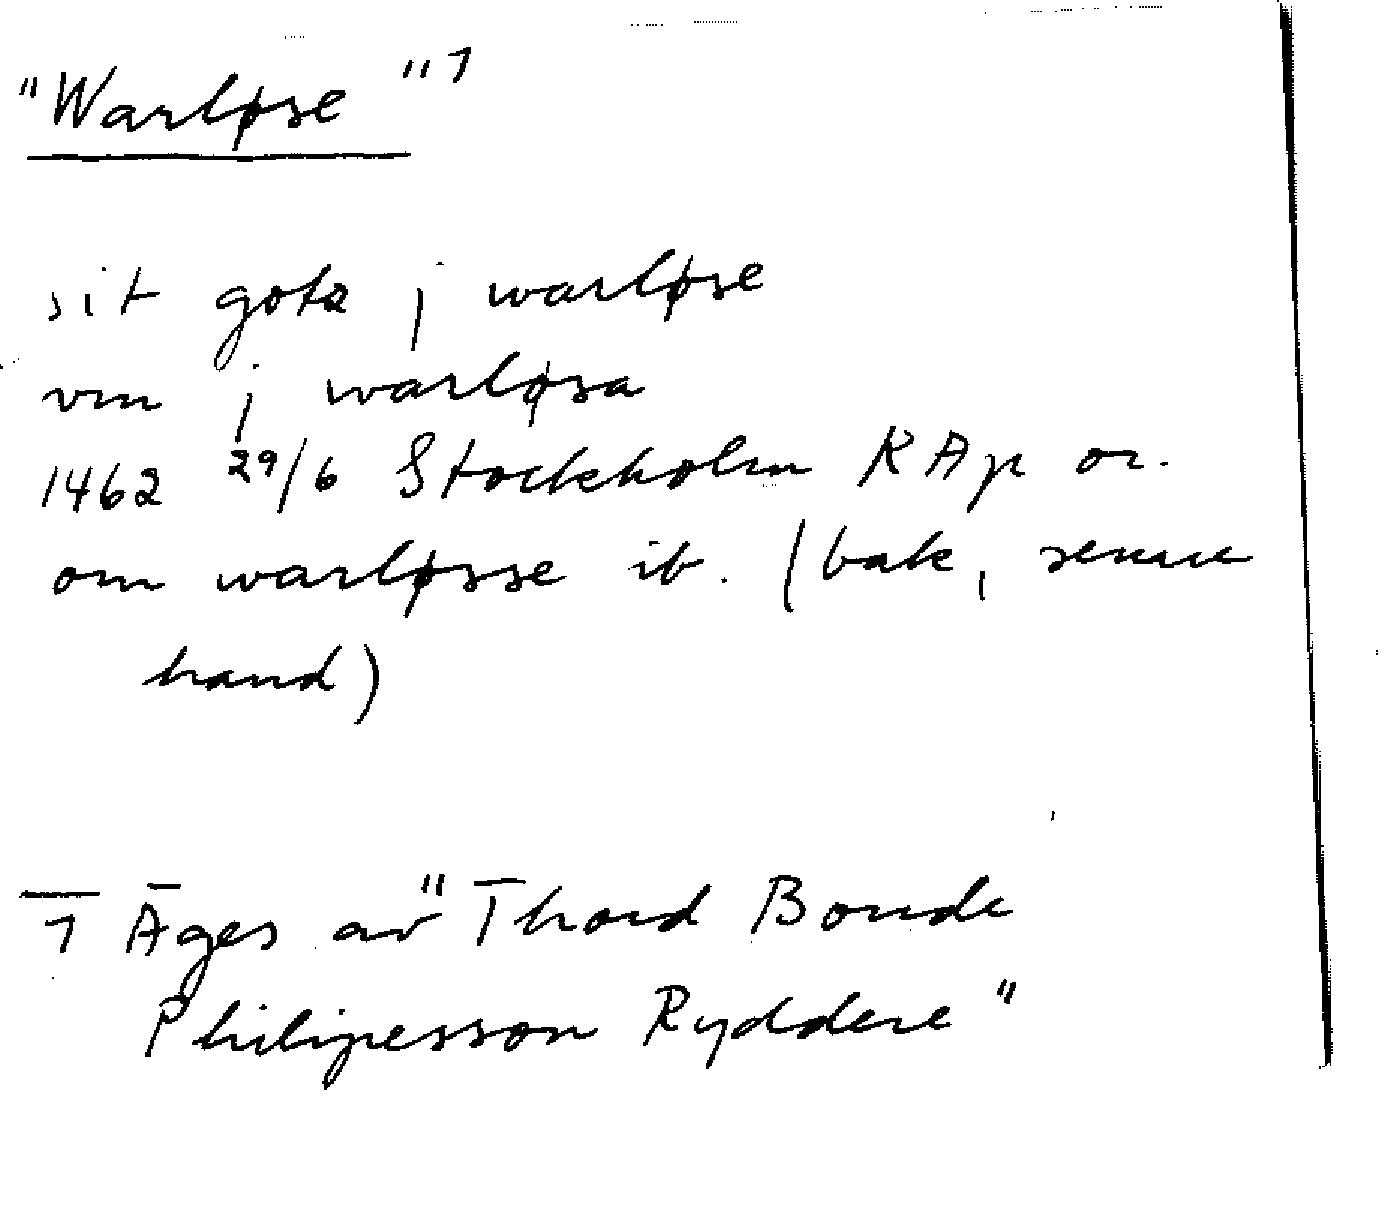 "Warløse"¹
sit gotz j warløse
vm j warløsa
1462 29/6 Stockholm RAp or.
om warløsse ib. (bak, senare
hand)
1 Äges av "Thord Bonde
Philipesson Ryddere"